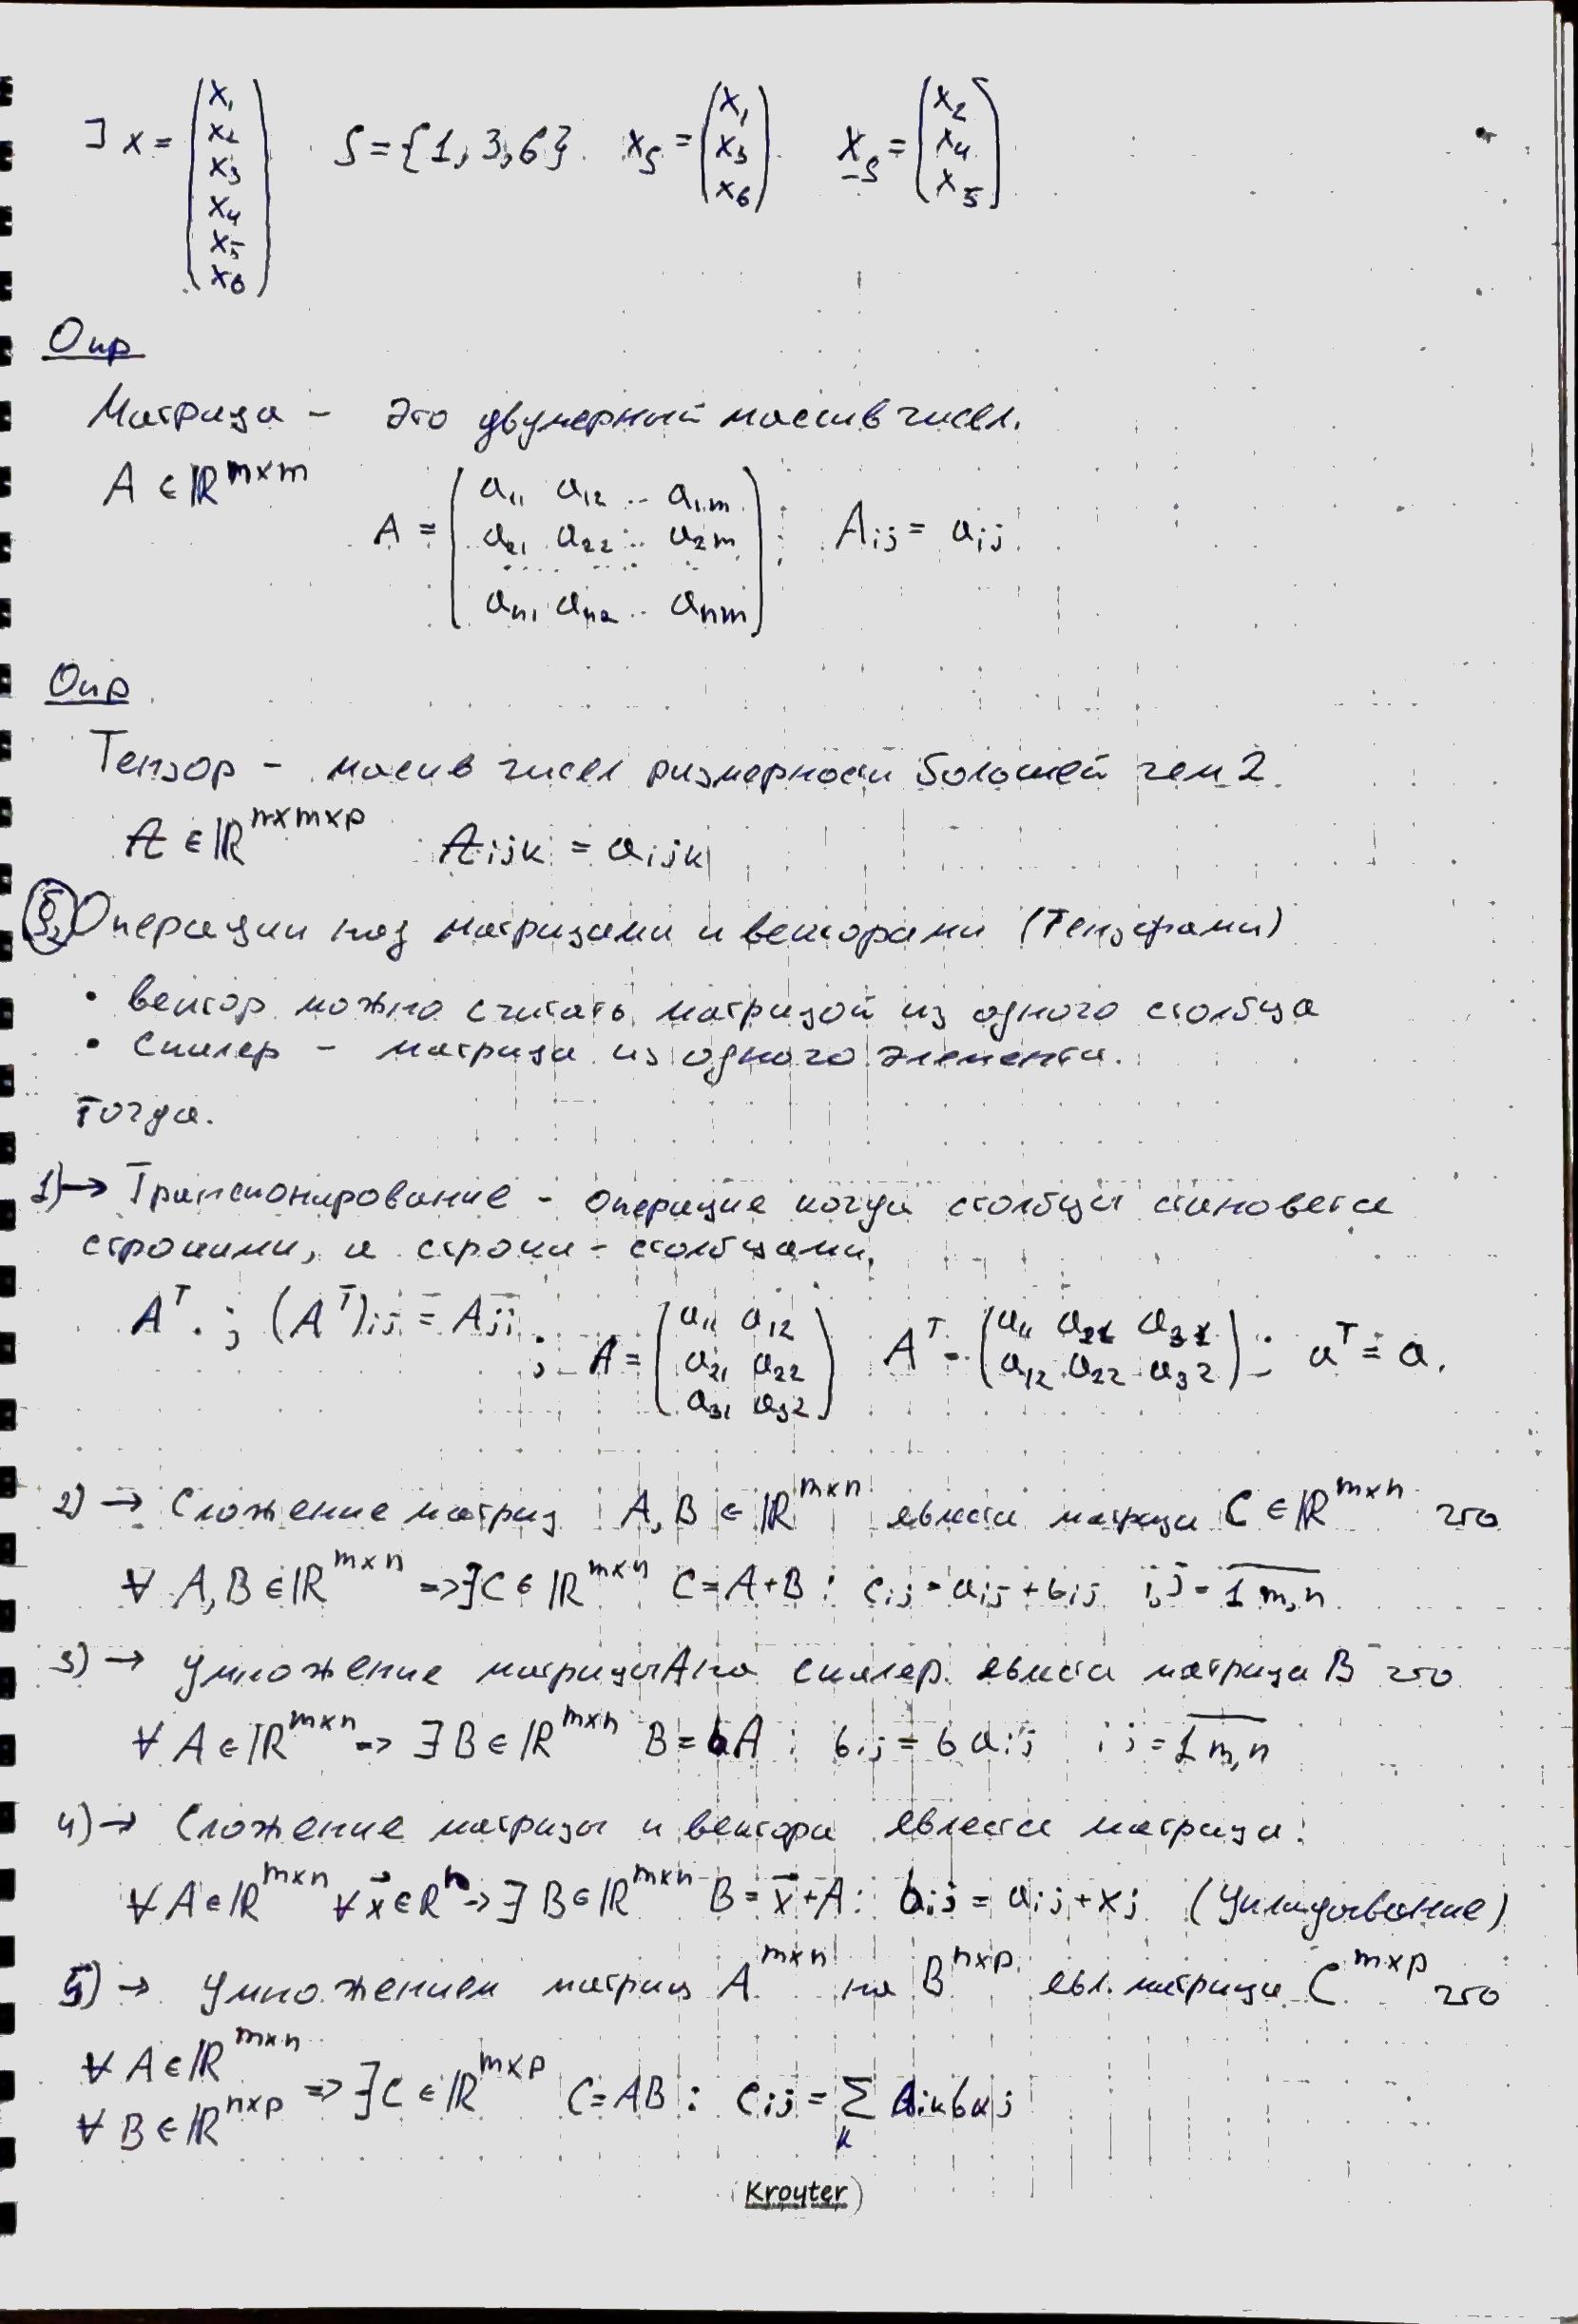 ∃ x = (x₁ x₂ x₃ x₄ x₅ x₆) S = {1, 3, 6} x_S = (x₁ x₃ x₆) x_-S = (x₂ x₄ x₅)
Опр
Матрица – это двумерный массив чисел.
A ∈ ℝ^{m×m}
A = (a₁₁ a₁₂ .. a₁m
a₂₁ a₂₂ .. a₂m
. . . . . . . .
aₙ₁ aₙ₂ .. aₙm) ; A_ij = a_ij
Опр.
Тензор – масив чисел размерности большей чем 2.
A ∈ ℝ^{m×m×p} A_ijk = a_ijk
§2 Операции над матрицами и векторами (Тензорами)
• вектор можно считать матрицой из одного столбца
• Скаляр – матрица из одного элемента.
Тогда.
1) → Транспонирование – операция когда столбцы становятся
строками, а строки – столбцами.
A^T ; (A^T)_ij = A_ji ; A = (a₁₁ a₁₂
a₂₁ a₂₂
a₃₁ a₃₂) A^T = (a₁₁ a₂₁ a₃₁
a₁₂ a₂₂ a₃₂) ; a^T = a.
2) → Сложение матриц A, B ∈ ℝ^{m×n} явлется матрица C ∈ ℝ^{m×n} что
∀ A, B ∈ ℝ^{m×n} => ∃ C ∈ ℝ^{m×n} C = A + B : c_ij = a_ij + b_ij i,j = 1 m,n
3) → умножение матрицы A на скаляр явлется матрица B что
∀ A ∈ ℝ^{m×n} => ∃ B ∈ ℝ^{m×n} B = bA : b_ij = b a_ij i j = 1 m,n
4) → Сложение матрицы и вектора явлеется матрица:
∀ A ∈ ℝ^{m×n} ∀ x⃗ ∈ R^n -> ∃ B ∈ ℝ^{m×n} B = x⃗ + A : b_ij = a_ij + x_j
5) → Умножением матриц A^{m×n} на B^{n×p} явл. матрица C^{m×p} что
∀ A ∈ ℝ^{m×n}
∀ B ∈ ℝ^{n×p} => ∃ C ∈ ℝ^{m×p} C = AB : c_ij = Σ_k a_ik b_kj
(Kroyter)